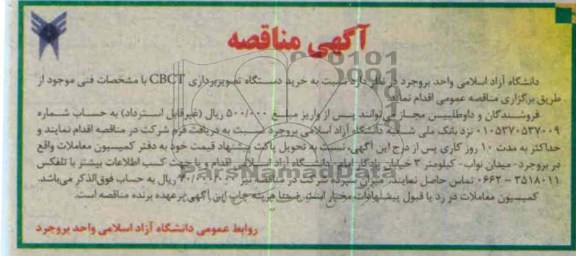 آگهی مناقصه
دانشگاه آزاد اسلامی واحد بروجرد در نظر دارد نسبت به خرید دستگاه تصویربرداری CBCT با مشخصات فنی موجود از
طریق برگزاری مناقصه عمومی اقدام نماید.
فروشندگان و داوطلبین مجاز می‌توانند پس از واریز مبلغ ۵۰۰/۰۰۰ ریال (غیرقابل استرداد) به حساب شماره
۰۱۰۵۳۷۰۵۳۷۰۰۹ نزد بانک ملی شعبه دانشگاه آزاد اسلامی بروجرد نسبت به دریافت فرم شرکت در مناقصه اقدام نمایند و
حداکثر به مدت ۱۰ روز کاری پس از درج این آگهی، نسبت به تحویل پاکت پیشنهاد قیمت خود به دفتر کمیسیون معاملات واقع
در بروجرد- میدان نواب- کیلومتر ۳ خیابان یادگار امام- دانشگاه آزاد اسلامی اقدام و یا جهت کسب اطلاعات بیشتر با تلفکس
۳۵۱۸۰۱۱ - ۰۶۶۲ تماس حاصل نمایند. میزان سپرده شرکت در مناقصه نیز ریال به حساب فوق‌الذکر می‌باشد.
کمیسیون معاملات در رد یا قبول پیشنهادات مختار است. ضمنا هزینه چاپ این آگهی بر عهده برنده مناقصه است.
روابط عمومی دانشگاه آزاد اسلامی واحد بروجرد
ParsNamadData